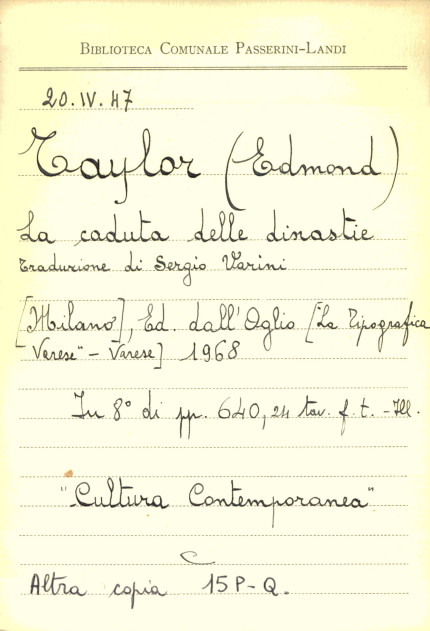 BIBLIOTECA COMUNALE PASSERINI-LANDI
20.IV.47
Taylor (Edmond)
La caduta delle dinastie
Traduzione di Sergio Varini
[Milano], Ed. dall'Oglio ["La Tipografica
Varese" - Varese] 1968
In 8° di pp. 640, 24 tav. f. t. - Ill.
"Cultura Contemporanea"
Altra copia 15 P-Q.